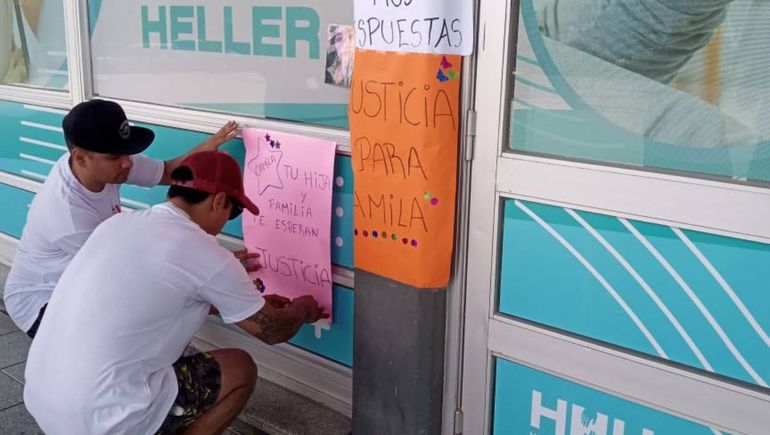 HELLER
SPUESTAS
USTICIA
PARA
AMILA
CAMILA
TU HIJA
Y
FAMILIA
TE ESPERAN
JUSTICIA